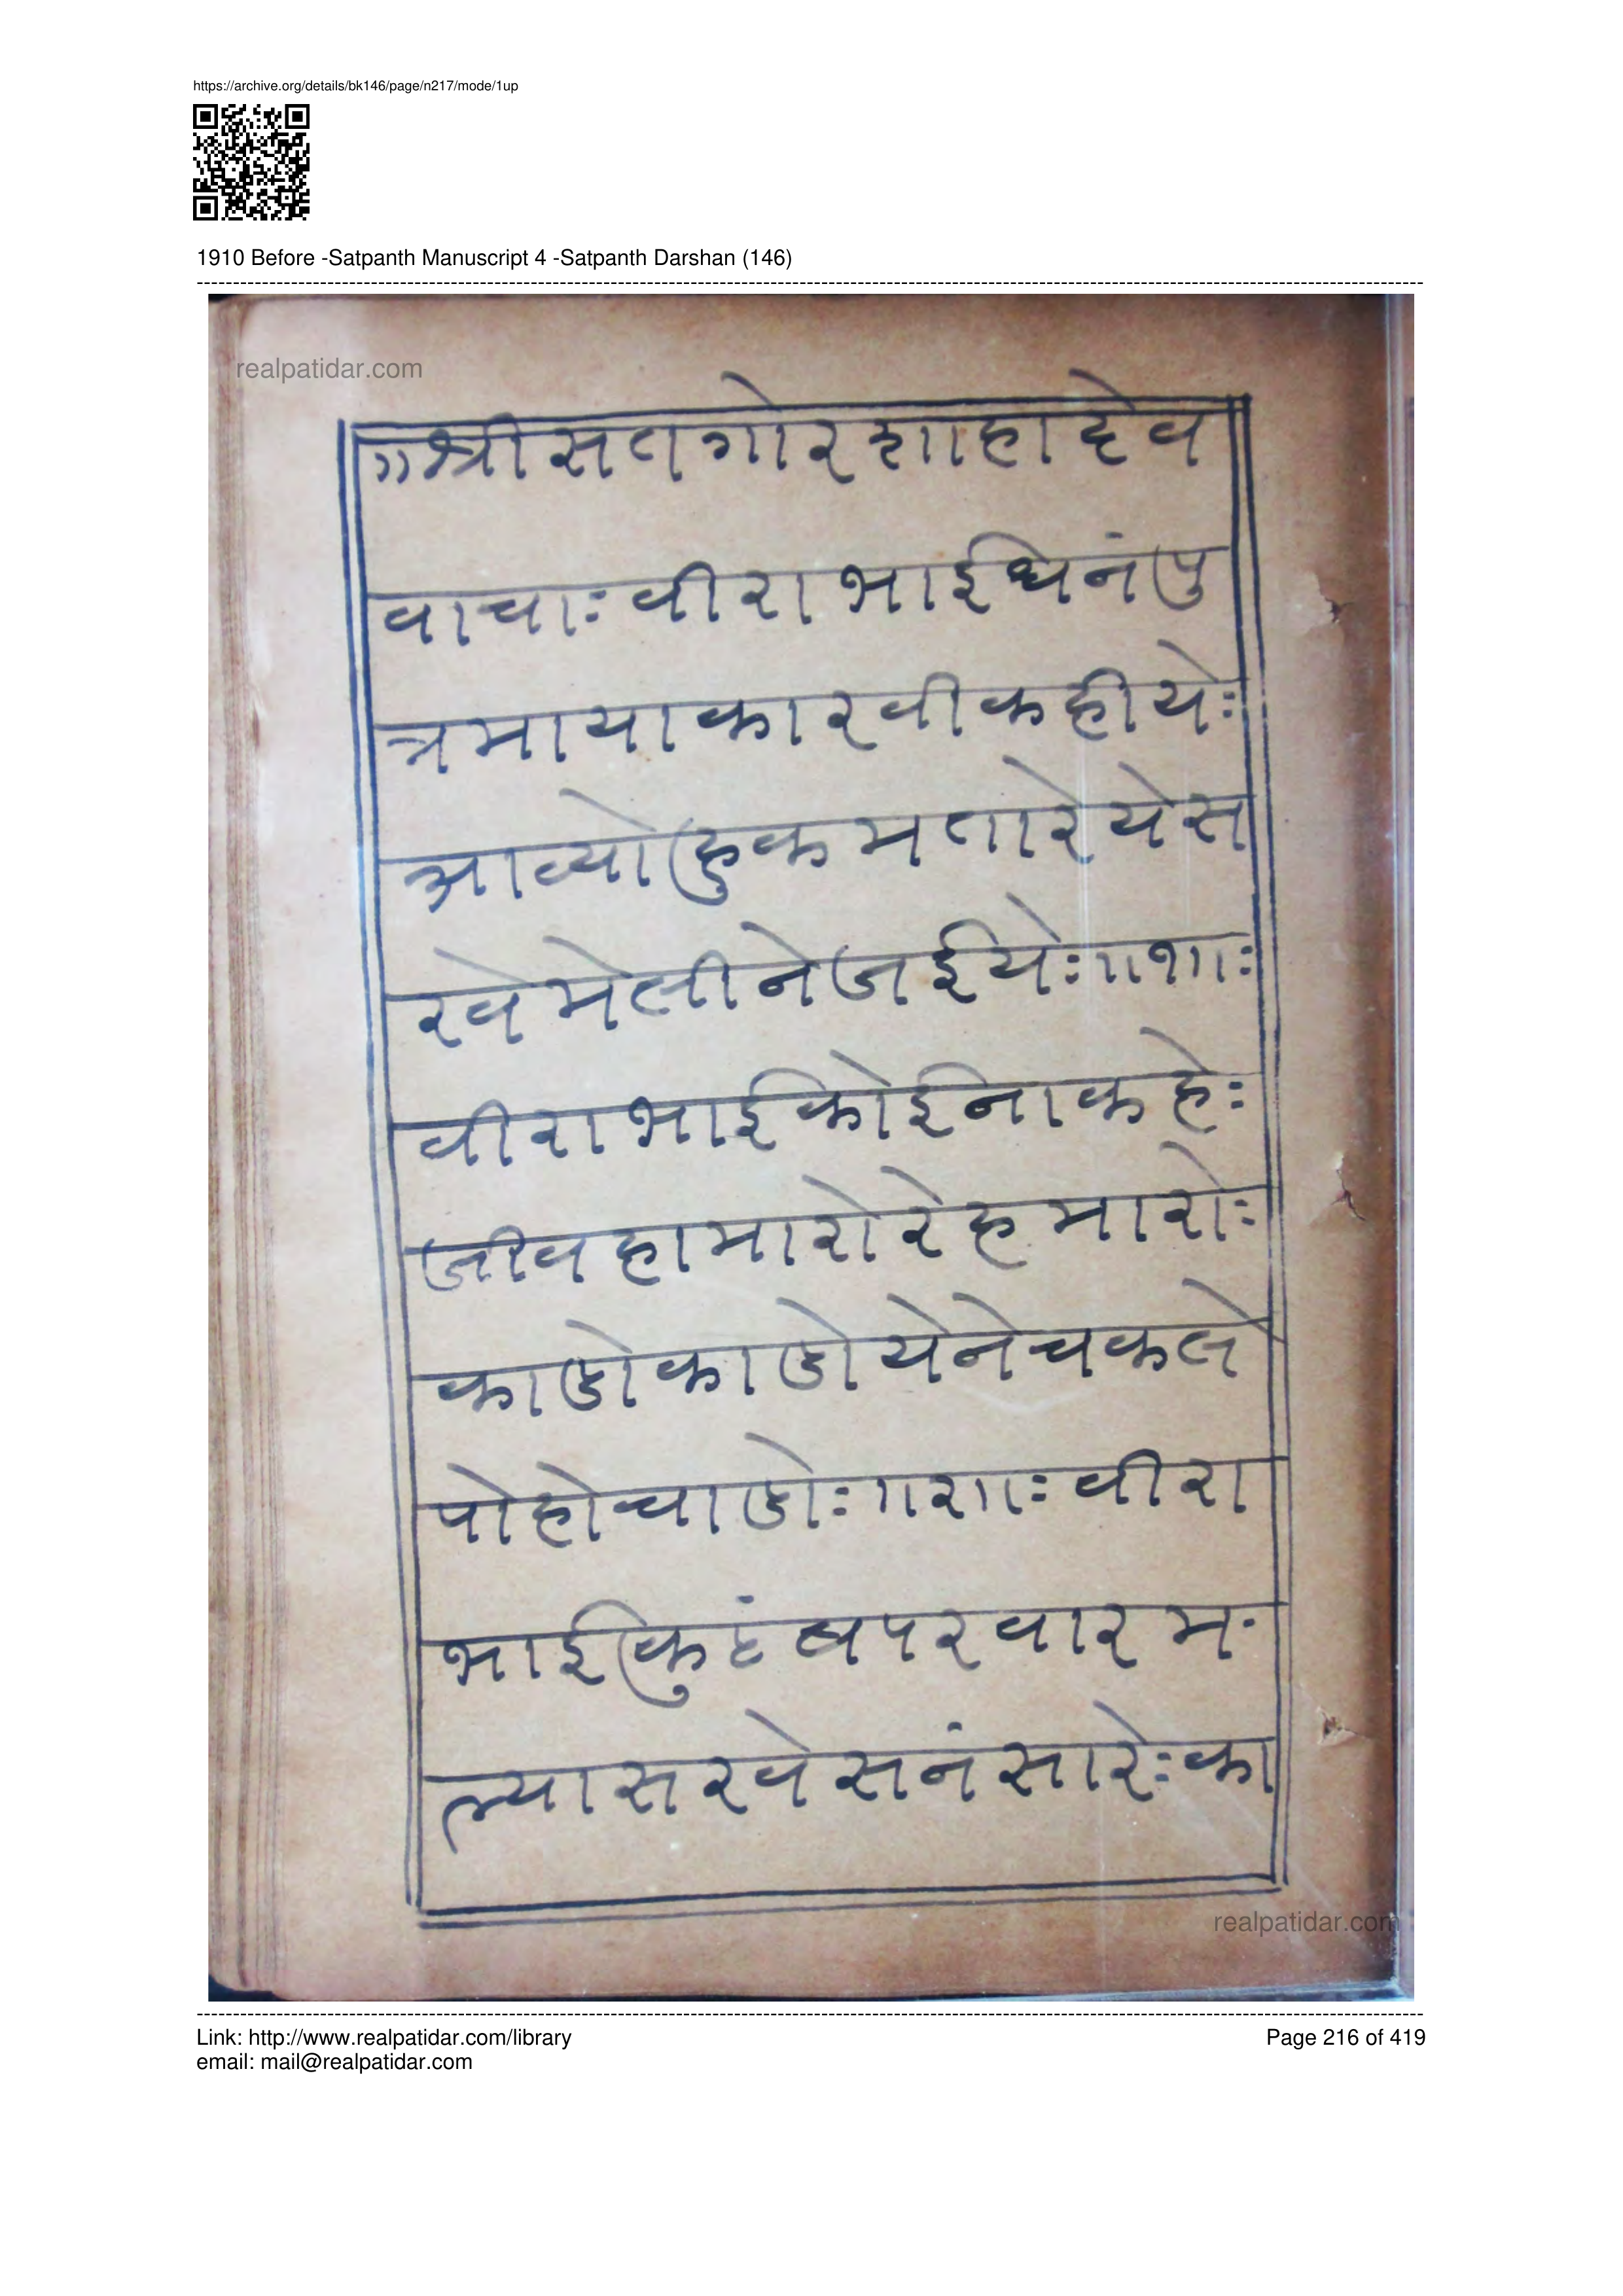 https://archive.org/details/bk146/page/n217/mode/1up
1910 Before -Satpanth Manuscript 4 -Satpanth Darshan (146)
realpatidar.com
॥श्रीसतगोरशाहादेव
वाचाः वीराभाईधेनंपु
त्रमायाकारवीकहीयेः
आव्योहुकमतारेयेस
रवेमेलीनेजईयेः॥१॥ः
वीराभाईकोईनाकहेः
जीवहामारोरेहमारोः
काडोकाडोयेनेचकले
पोहोचाडोः॥२॥ः वीरा
भाईकुटंबपरवारम
ल्यासरवेसनंसारेःका
realpatidar.com
Link: http://www.realpatidar.com/library
Page 216 of 419
email: mail@realpatidar.com